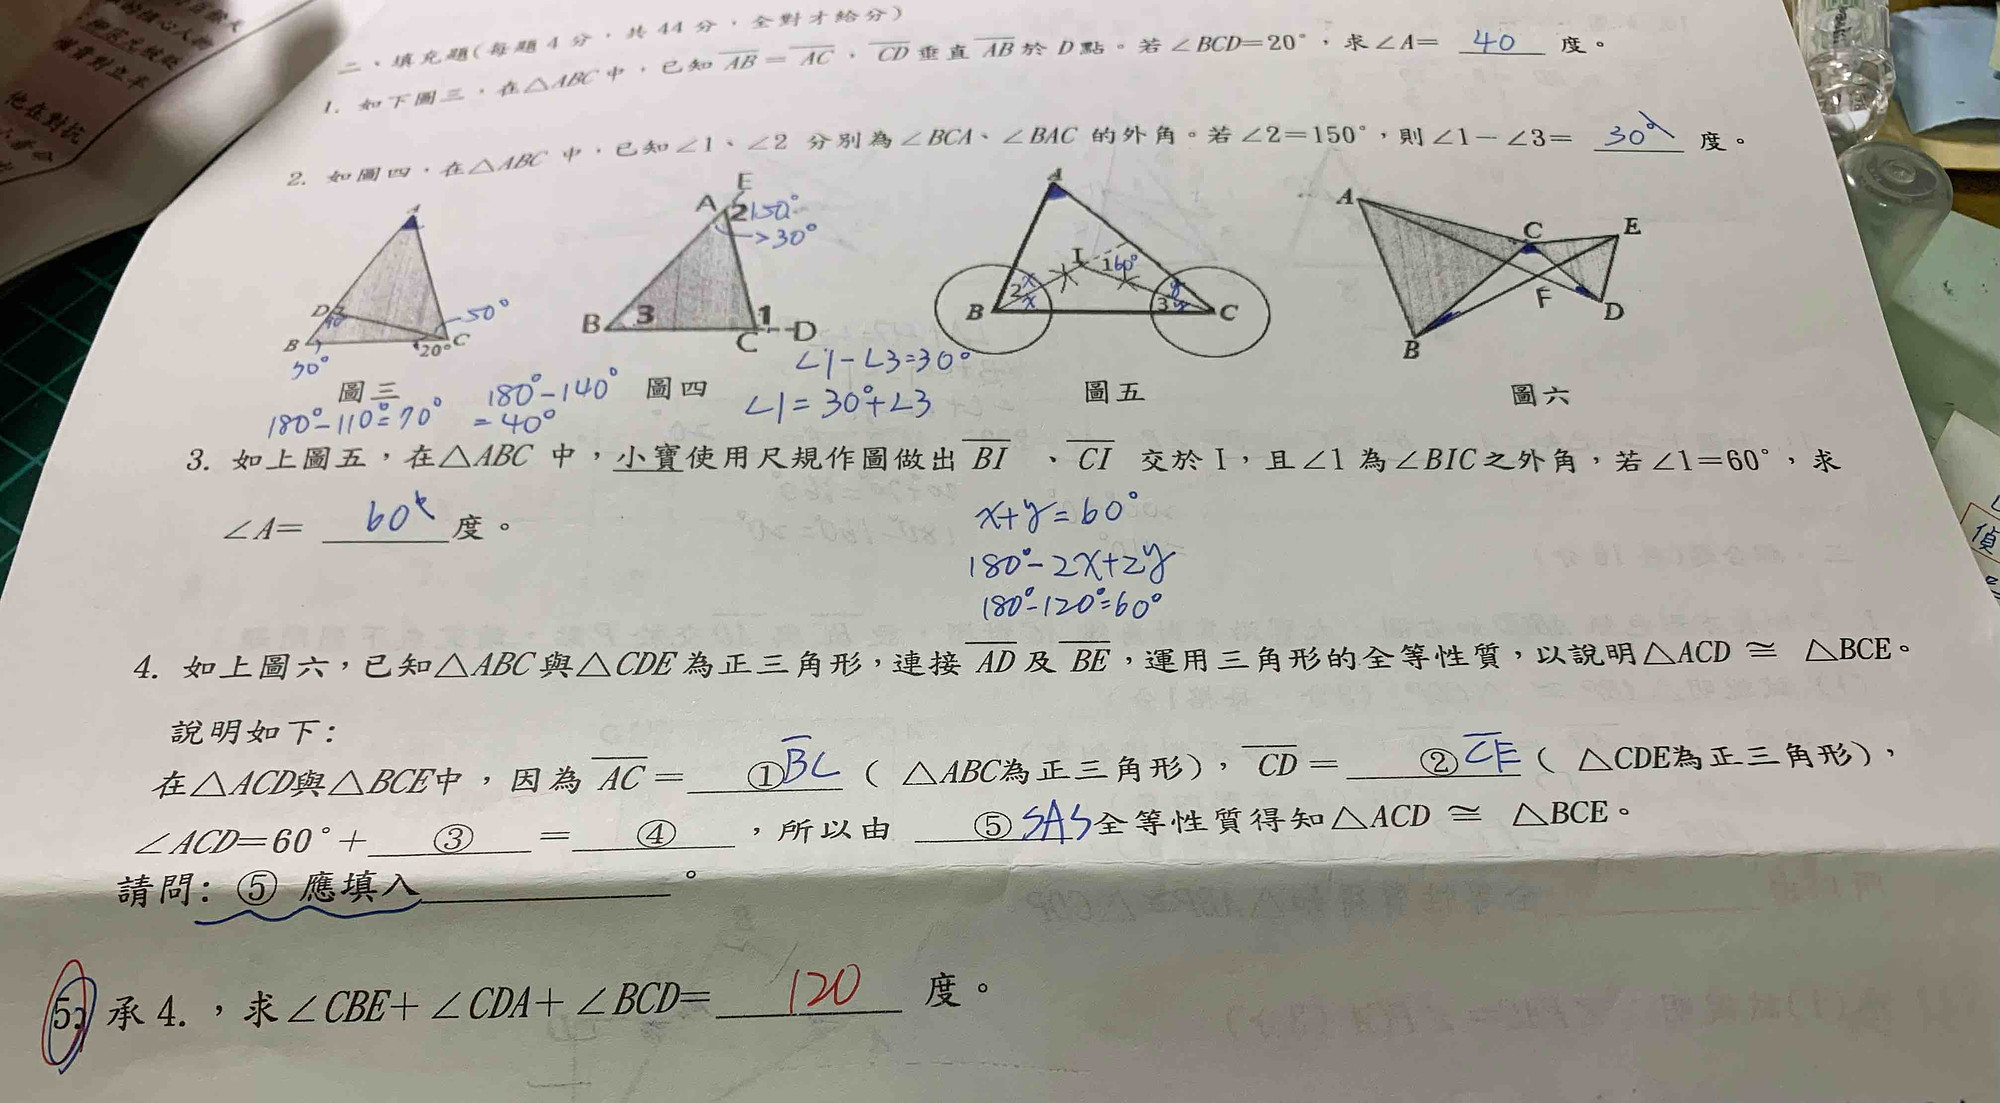 二、填充題(每題 4 分，共 44 分，全對才給分)
1. 如下圖三，在△ABC 中，已知 AB = AC，CD 垂直 AB 於 D 點。若∠BCD=20°，求∠A= 40 度。
2. 如圖四，在△ABC 中，已知∠1、∠2 分別為∠BCA、∠BAC 的外角。若∠2=150°，則∠1－∠3= 30° 度。
A
D
B
C
50°
20°
圖三
180°-110°=70°
180°-140°
=40°
E
A
2 150°
>30°
B
3
1
C
D
圖四
∠1-∠3=30°
∠1=30°+∠3
A
I
1 60°
B
2
x
x
3
y
y
C
圖五
A
C
E
F
D
B
圖六
3. 如上圖五，在△ABC 中，小寶使用尺規作圖做出 BI 、 CI 交於 I，且∠1 為∠BIC之外角，若∠1=60°，求
∠A= 60 度。
x+y=60°
180°-2x+2y
180°-120°=60°
4. 如上圖六，已知△ABC與△CDE為正三角形，連接 AD 及 BE，運用三角形的全等性質，以說明△ACD ≅ △BCE。
說明如下:
在△ACD與△BCE中，因為 AC = ① BC ( △ABC為正三角形)， CD = ② CE ( △CDE為正三角形)，
∠ACD=60°+ ③ = ④ ，所以由 ⑤ SAS 全等性質得知△ACD ≅ △BCE。
請問: ⑤ 應填入 。
5. 承 4.，求∠CBE+∠CDA+∠BCD= 120 度。